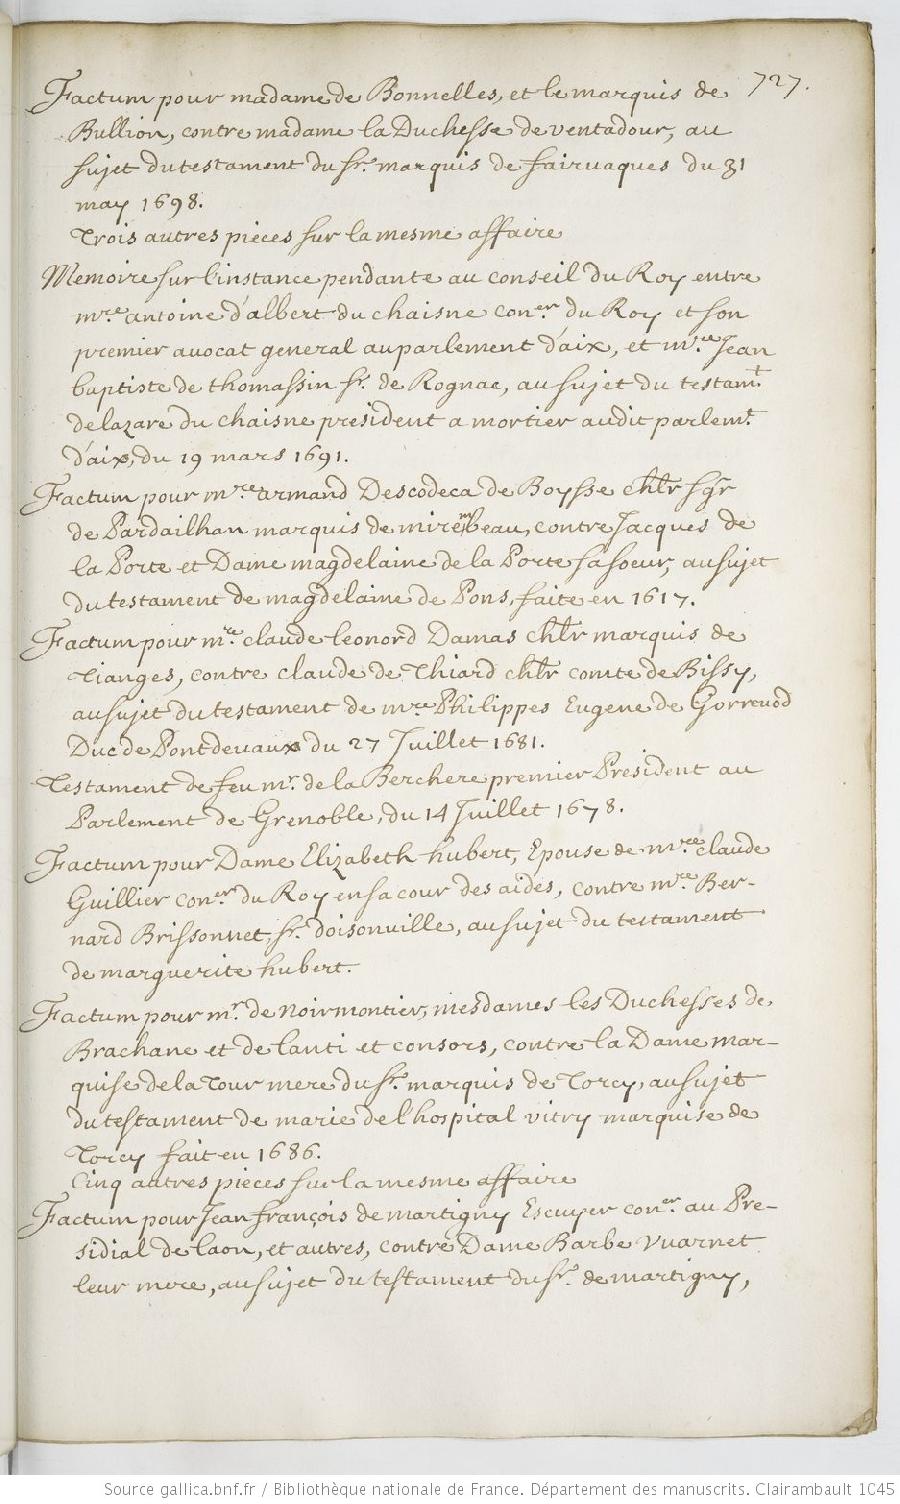 727.
Factum pour madame de Bonnelles, et le marquis de
Bullion, contre madame la Duchesse de ventadour, au
sujet du testament du sr. marquis de fairuaques du 31
may 1698.
Trois autres pieces sur la mesme affaire
Memoire sur l'instance pendante au conseil du Roy entre
mre. antoine d'albert du chaisne coner. du Roy et son
premier avocat general au parlement d'aix, et mre. Jean
baptiste de thomassin sr. de Rognac, au sujet du testamt.
de lazare du chaisne president a mortier audit parlemt.
d'aix, du 19 mars 1691.
Factum pour mre. armand Descodeca de Boysse chlr sgr
de Pardailhan marquis de mirembeau, contre Jacques de
la Porte et Dame magdelaine de la Porte sa soeur, au sujet
du testament de magdelaine de Pons, faite en 1617.
Factum pour mre. claude leonord Damas chlr marquis de
Tianges, contre claude de Thiard chlr comte de Bissy,
au sujet du testament de mre. Philippes Eugene de Gorreuod
Duc de Pontdevaux du 27 Juillet 1681.
Testament de feu mr. de la Berchere premier President au
Parlement de Grenoble, du 14 Juillet 1678.
Factum pour Dame Elizabeth hubert, Epouse de mre. claude
Guillier coner. du Roy en sa cour des aides, contre mre. Ber-
nard Brissonnet, sr. doisonville, au sujet du testament
de marguerite hubert.
Factum pour mr. de noirmontier, mesdames les Duchesses de
Brachane et de lanti et consors, contre la Dame mar-
quise de la Tour mere du sr. marquis de Torcy, au sujet
du testament de marie de l'hospital vitry marquise de
Torcy fait en 1686.
Cinq autres pieces sur la mesme affaire
Factum pour Jean françois de martigny Escuyer coner. au Pre-
sidial de laon, et autres, contre Dame Barbe Vuarnet
leur mere, au sujet du testament du sr. de martigny,
Source gallica.bnf.fr / Bibliothèque nationale de France. Département des manuscrits. Clairambault 1045